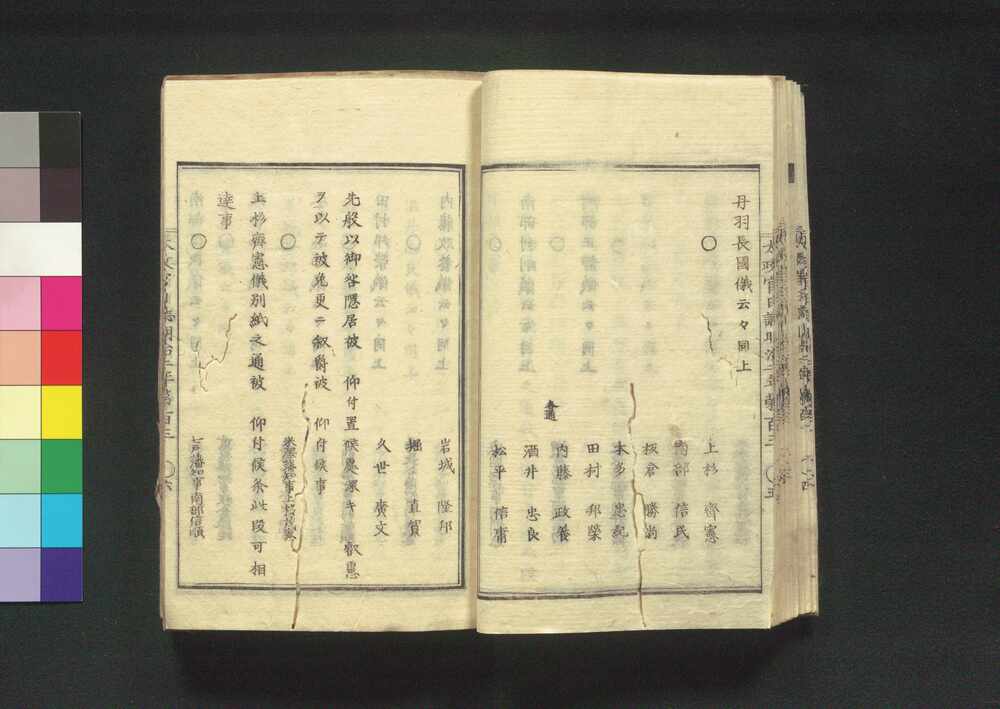 丹羽長國儀云々同上
○
上杉 齊憲
南部 信民
板倉 勝尚
本多 忠紀
田村 邦榮
内藤 政養
酒井 忠良
松平 信庸
岩城 隆邦
○
堀 直賀
久世 廣文
先般以御咎隱居被 仰付置候處深キ 叡惠
ヲ以テ被免更ニ叙爵被 仰付候事
○
米澤藩知事上杉茂憲
上杉齊憲儀別紙之通被 仰付候条此段可相
達事
○
七戸藩知事南部信方